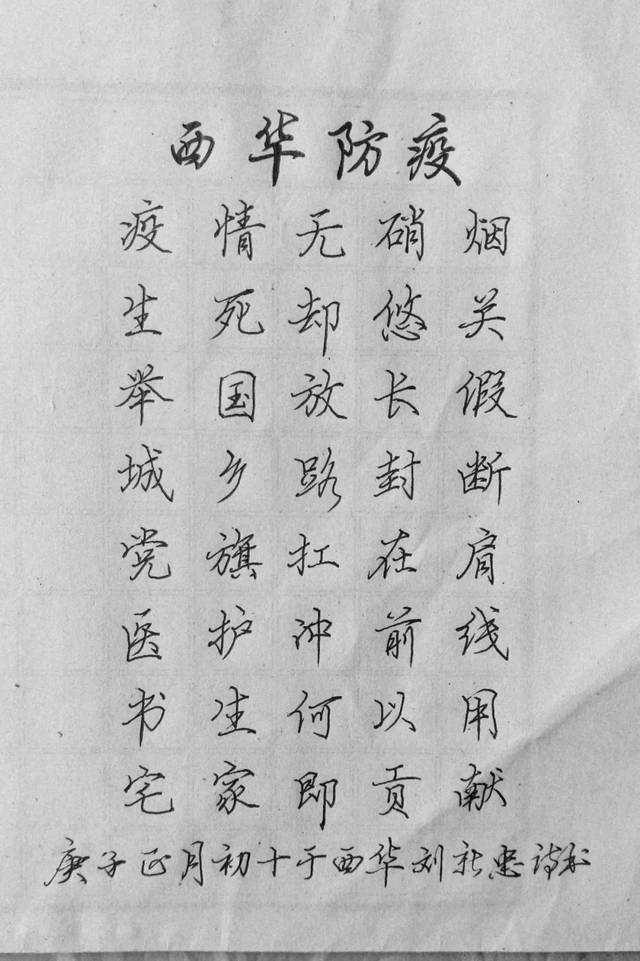 西华防疫
疫情无硝烟
生死却悠关
举国放长假
城乡路封断
党旗扛在肩
医护冲前线
书生何以用
宅家即贡献
庚子正月初十于西华刘新忠诗书